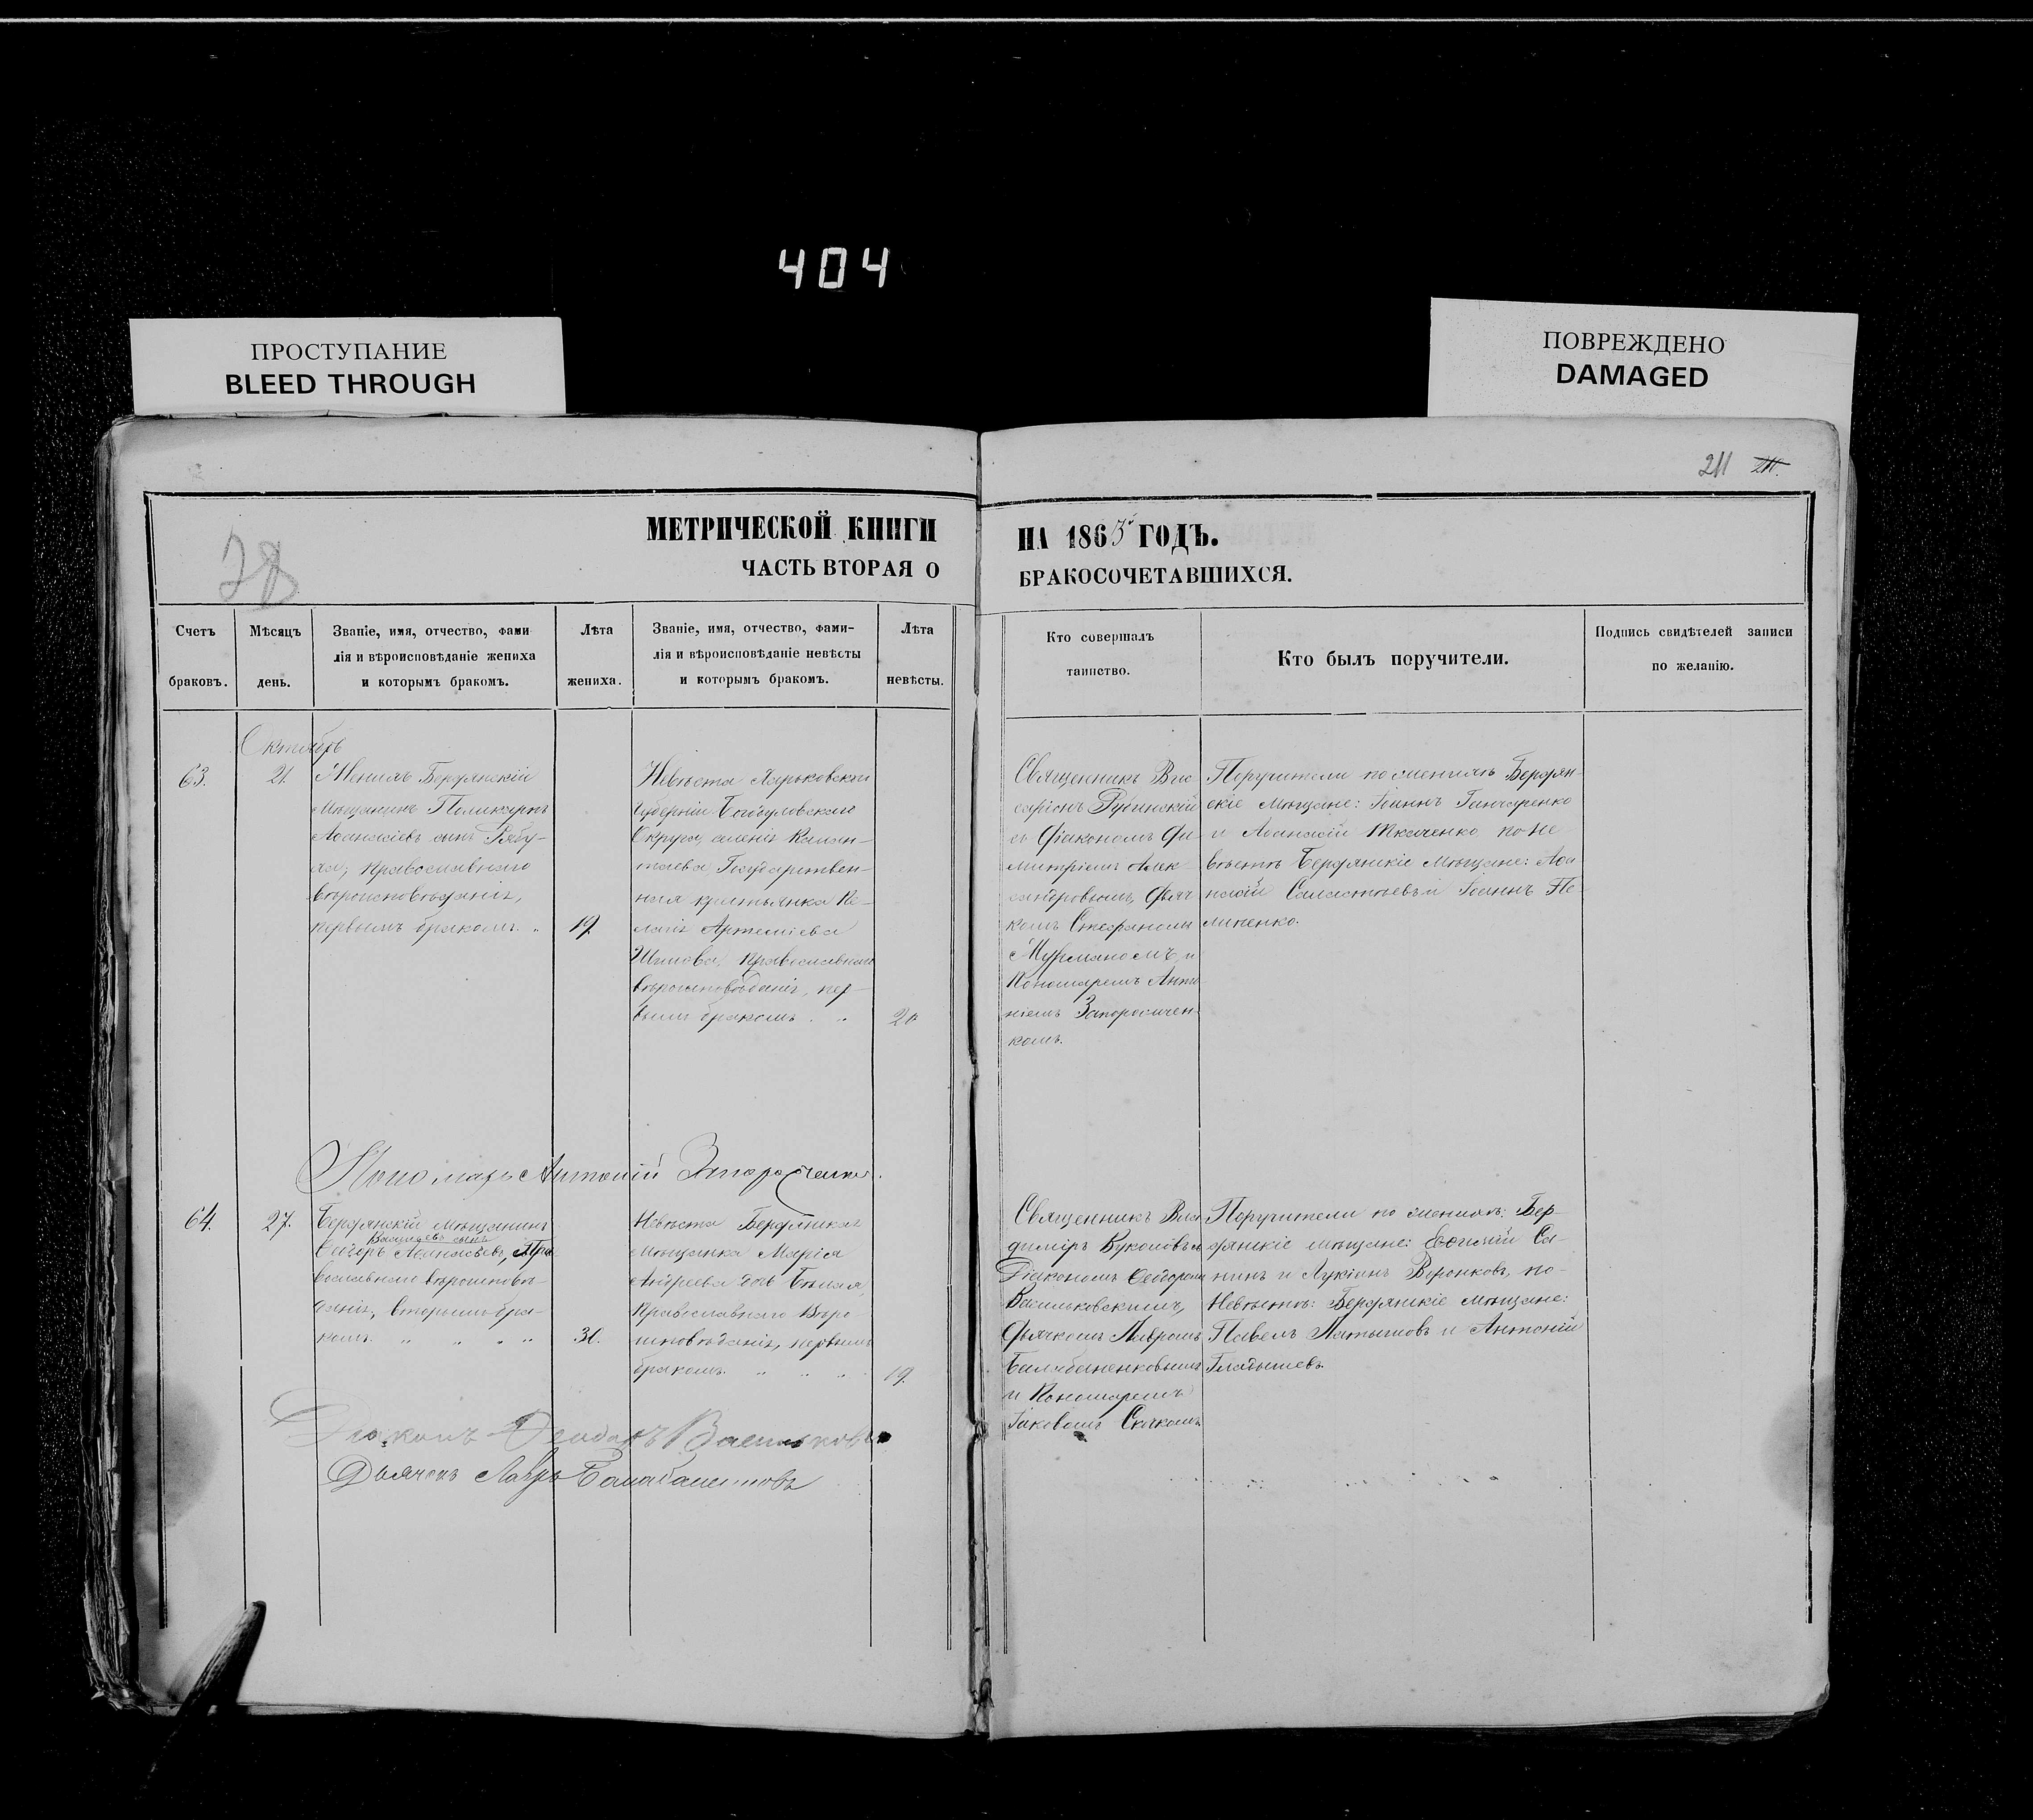 404
ПРОСТУПАНИЕ
BLEED THROUGH
ПОВРЕЖДЕНО
DAMAGED
211
МЕТРИЧЕСКОЙ КНИГИ
НА 1863 ГОДЪ.
ЧАСТЬ ВТОРАЯ О
БРАКОСОЧЕТАВШИХСЯ.
Счетъ
браковъ.
Мѣсяцъ
день.
Званіе, имя, отчество, фами
лія и вѣроисповѣданіе жениха
и которымъ бракомъ.
Лѣта
жениха.
Званіе, имя, отчество, фами-
лія и вѣроисповѣданіе невѣсты
и которымъ бракомъ.
Лѣта
невѣсты.
Кто совершалъ
таинство.
Кто былъ поручители.
Подпись свидѣтелей записи
по желанію.
Октябрь
63.
21.
Женихъ Бердянскій
Мѣщанинъ Поликарпъ
Аѳанасіевъ сынъ Рябу-
ха, православнаго
вѣроисповѣданія,
первымъ бракомъ.
19.
Невѣста Харьковской
Губерніи
Округа, селенія
Государствен-
ная крестьянка Пе-
лагія Артеміева
православнаго
вѣроисповѣданія, пер-
вымъ бракомъ.
20
Священникъ Вис
саріонъ
съ Діакономъ Ди-
митріемъ Алек-
сандровымъ, Дьяч
комъ Стефаномъ
Мурманомъ и
Пономаремъ Анто
ніемъ Запорожчен-
комъ.
Поручители по женихѣ Бердян-
скіе мѣщане: Іоаннъ Ганчаренко
и Аѳанасій Ткаченко по не
вѣстѣ Бердянскіе Мѣщане: Аѳа
насій и Іоаннъ Пе
липенко.
Пономарь Антоній
64.
27.
Бердянскій мѣщанинъ
Васильевъ сынъ
Аѳанасьевъ, Пра
вославнаго вѣроисповѣ
данія, вторымъ бра-
комъ.
31.
Невѣста Бердянская
мѣщанка Марія
Андреева Бѣлая,
Православнаго Вѣро
исповѣданія, первымъ
бракомъ.
19.
Священникъ Вла
диміръ
Діакономъ Ѳеодоромъ
Васильковскимъ,
Дьячкомъ Лавромъ
Балабаненковымъ
и Пономаремъ
Іаковомъ Скачкомъ
Поручители по женихѣ: Бер-
дянскіе мѣщане: Евѳимій Са-
нинъ и Лукіанъ Воронковъ, по-
Невѣстѣ: Бердянскіе мѣщане:
Павелъ Латышовъ и Антоній
Гладышевъ.
Діаконъ Ѳеодоръ
Дьячокъ Лавръ